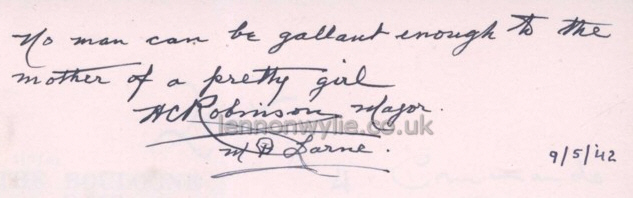 No man can be gallant enough to the
mother of a pretty girl
HCRobinson Major.
lennonwylie.co.uk
M D Larne.
9/5/42